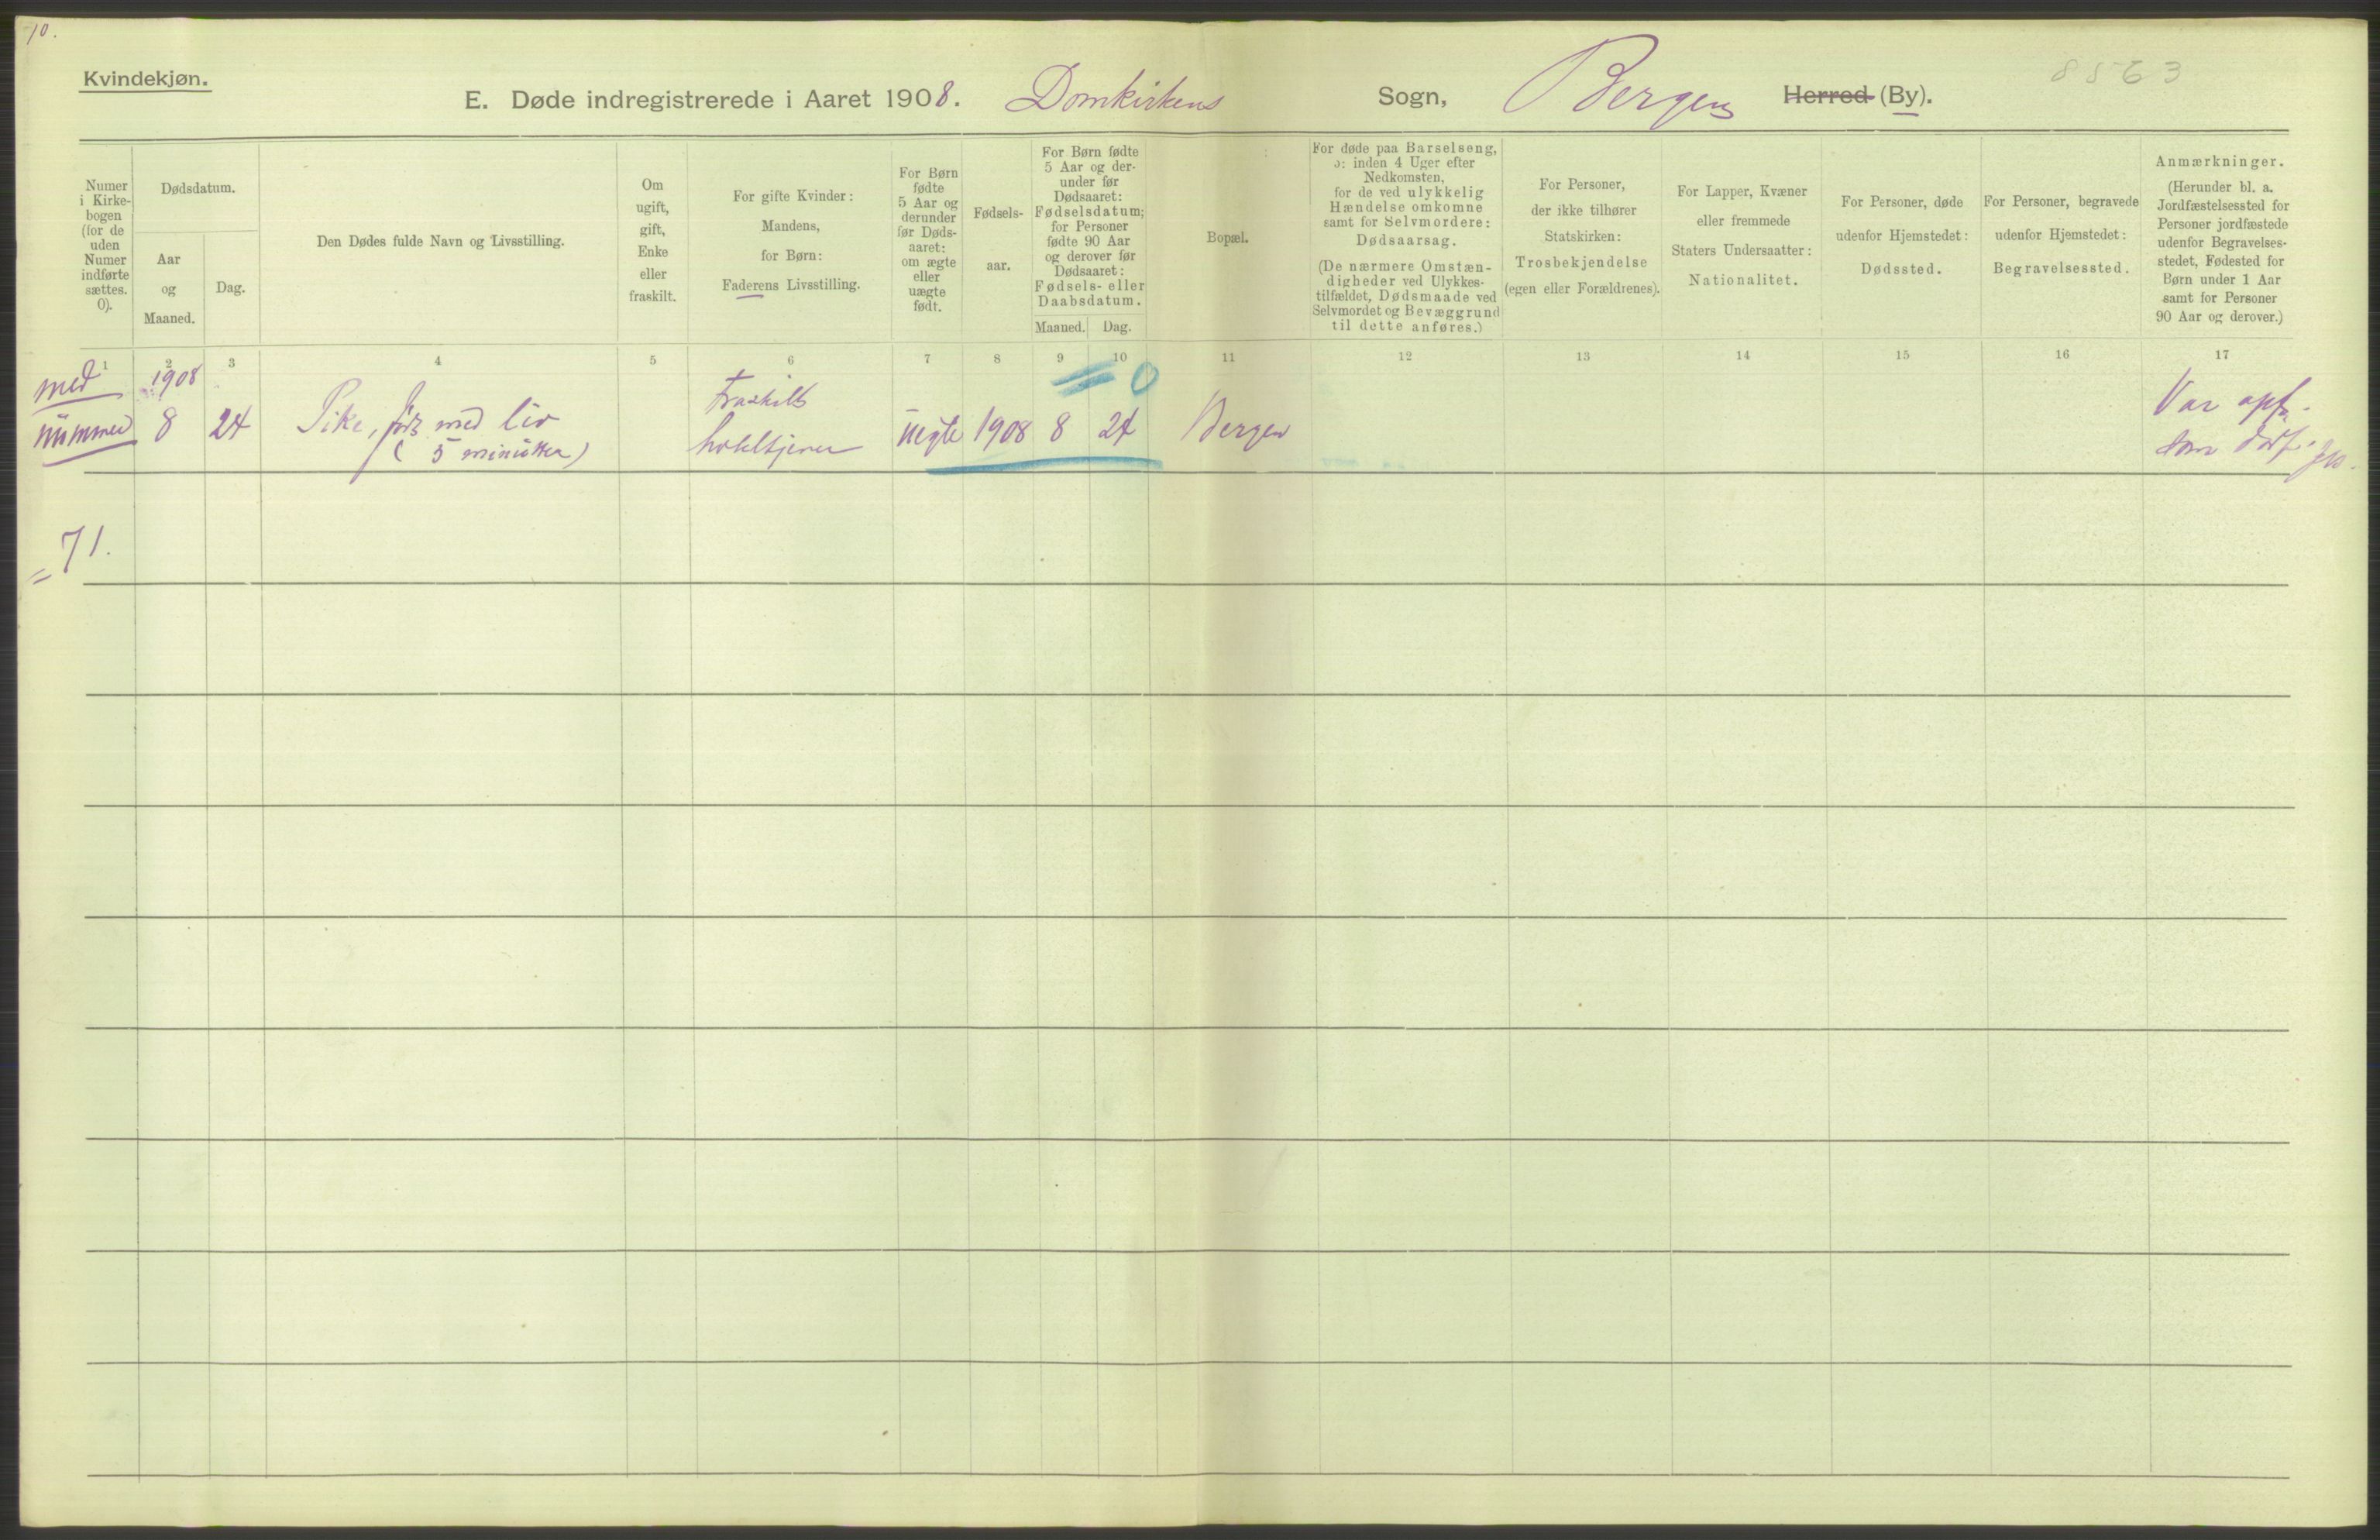 10.
Kvindekjøn.
E. Døde indregistrerede i Aaret 1908. Domkirkens Sogn, Bergens Herred (By).
8563
Numer
i Kirke-
bogen
(for de
uden
Numer
indførte
sættes.
0).
Dødsdatum.
Aar
og
Maaned.
Dag.
Den Dødes fulde Navn og Livsstilling.
Om
ugift,
gift,
Enke
eller
fraskilt.
For gifte Kvinder:
Mandens,
for Børn:
Faderens Livsstilling.
For Børn
fødte
5 Aar og
derunder
før Døds-
aaret:
om ægte
eller
uægte
født.
Fødsels-
aar.
For Børn fødte
5 Aar og der-
under før
Dødsaaret:
Fødselsdatum;
for Personer
fødte 90 Aar
og derover før
Dødsaaret:
Fødsels- eller
Daabsdatum.
Maaned. Dag.
Bopæl.
For døde paa Barselseng,
ɔ: inden 4 Uger efter
Nedkomsten,
for de ved ulykkelig
Hændelse omkomne
samt for Selvmordere:
Dødsaarsag.
(De nærmere Omstæn-
digheder ved Ulykkes-
tilfældet, Dødsmaade ved
Selvmordet og Bevæggrund
til dette anføres.)
For Personer,
der ikke tilhører
Statskirken:
Trosbekjendelse
(egen eller Forældrenes).
For Lapper, Kvæner
eller fremmede
Staters Undersaatter:
Nationalitet.
For Personer, døde
udenfor Hjemstedet:
Dødssted.
For Personer, begravede
udenfor Hjemstedet:
Begravelsessted.
Anmærkninger.
(Herunder bl. a.
Jordfæstelsessted for
Personer jordfæstede
udenfor Begravelses-
stedet, Fødested for
Børn under 1 Aar
samt for Personer
90 Aar og derover.)
1 2 3 4 5 6 7 8 9 10 11 12 13 14 15 16 17
med 1908 Fraskilt 0 Var opf.
nummer 8 24 Pike, med liv hoteltjener uegte 1908 8 24 Bergen som
(5 minutter)
= 71.